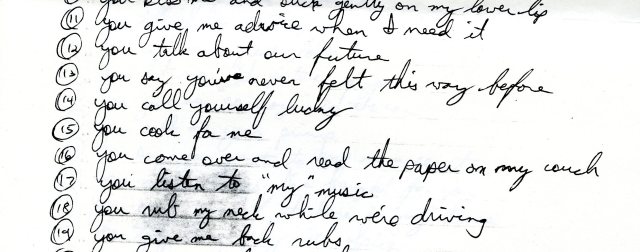 you kiss me and suck gently on my lower lip
(11) you give me advice when I need it
(12) you talk about our future
(13) you say you've never felt this way before
(14) you call yourself lucky
(15) you cook for me
(16) you come over and read the paper on my couch
(17) you listen to "my" music
(18) you rub my neck while we're driving
(19) you give me back rubs